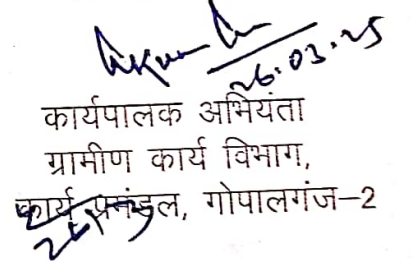 26.03.25
कार्यपालक अभियंता
ग्रामीण कार्य विभाग,
कार्य प्रमंडल, गोपालगंज-2